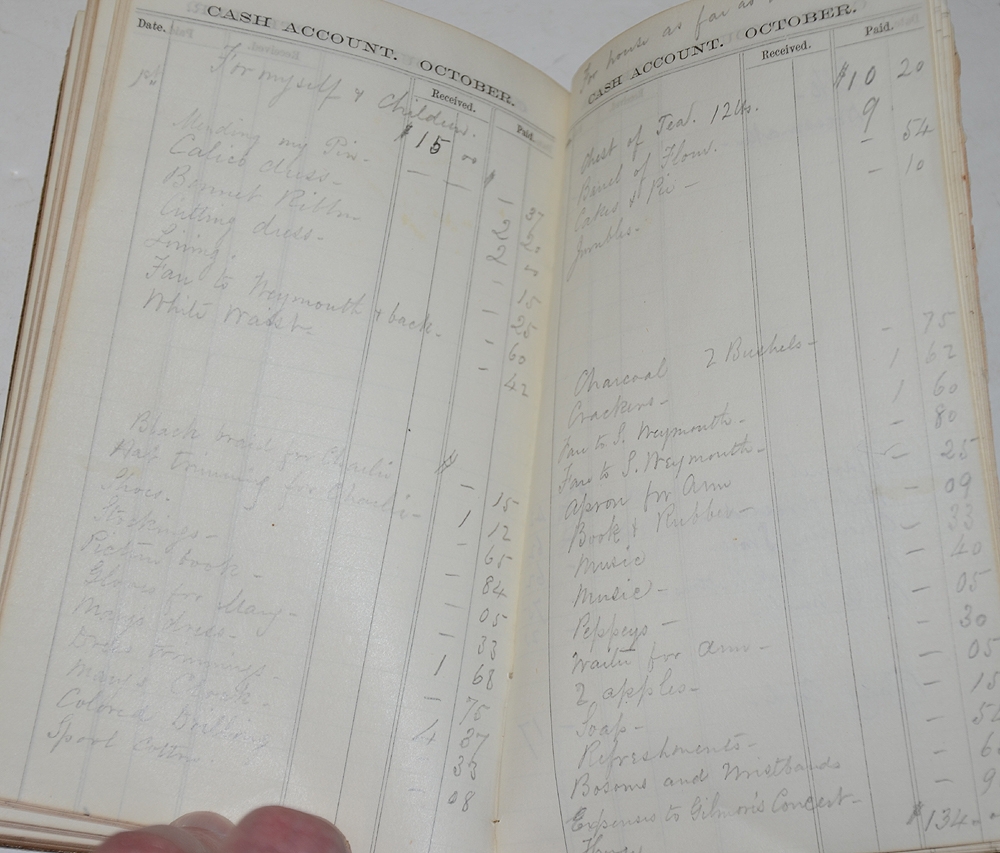 CASH ACCOUNT. OCTOBER.
Date. Received. Paid.
For myself & children.
$15 00
Mending my Pin - 1 37
Calico dress - 2 20
Bonnet Ribbon
Cutting dress -
Lining. 15
Fare to Weymouth & back - 25
White Waist 60
42
Black braid for Charlie $ - 15
Hat trimming for Charlie - 1 12
Shoes. - 65
Stockings - - 84
Picture book - - 05
Gloves for Mary - - 33
Marys dress - 1 68
Dress trimmings - - 75
Mary's Cloak. 4 37
Colored Drilling 33
Spool Cotton - 08
For house as far as
CASH ACCOUNT. OCTOBER.
Received. Paid.
Chest of Tea. 12 lbs. $10 20
Barrel of Flour. 9
Cakes & Pie - - 54
Jumbles. - 10
Charcoal 2 Bushels - - 75
Crackers - 1 62
Fare to S. Weymouth - 1 60
Fare to S. Weymouth - - 80
Apron for Ann - 25
Book & Rubber - - 09
Music - 33
Music - - 40
Peppers - - 05
for Ann - - 30
2 apples - - 05
Soap - - 15
Refreshments -
Bosoms and Wristbands
Expenses to Gilmore's Concert -
$134